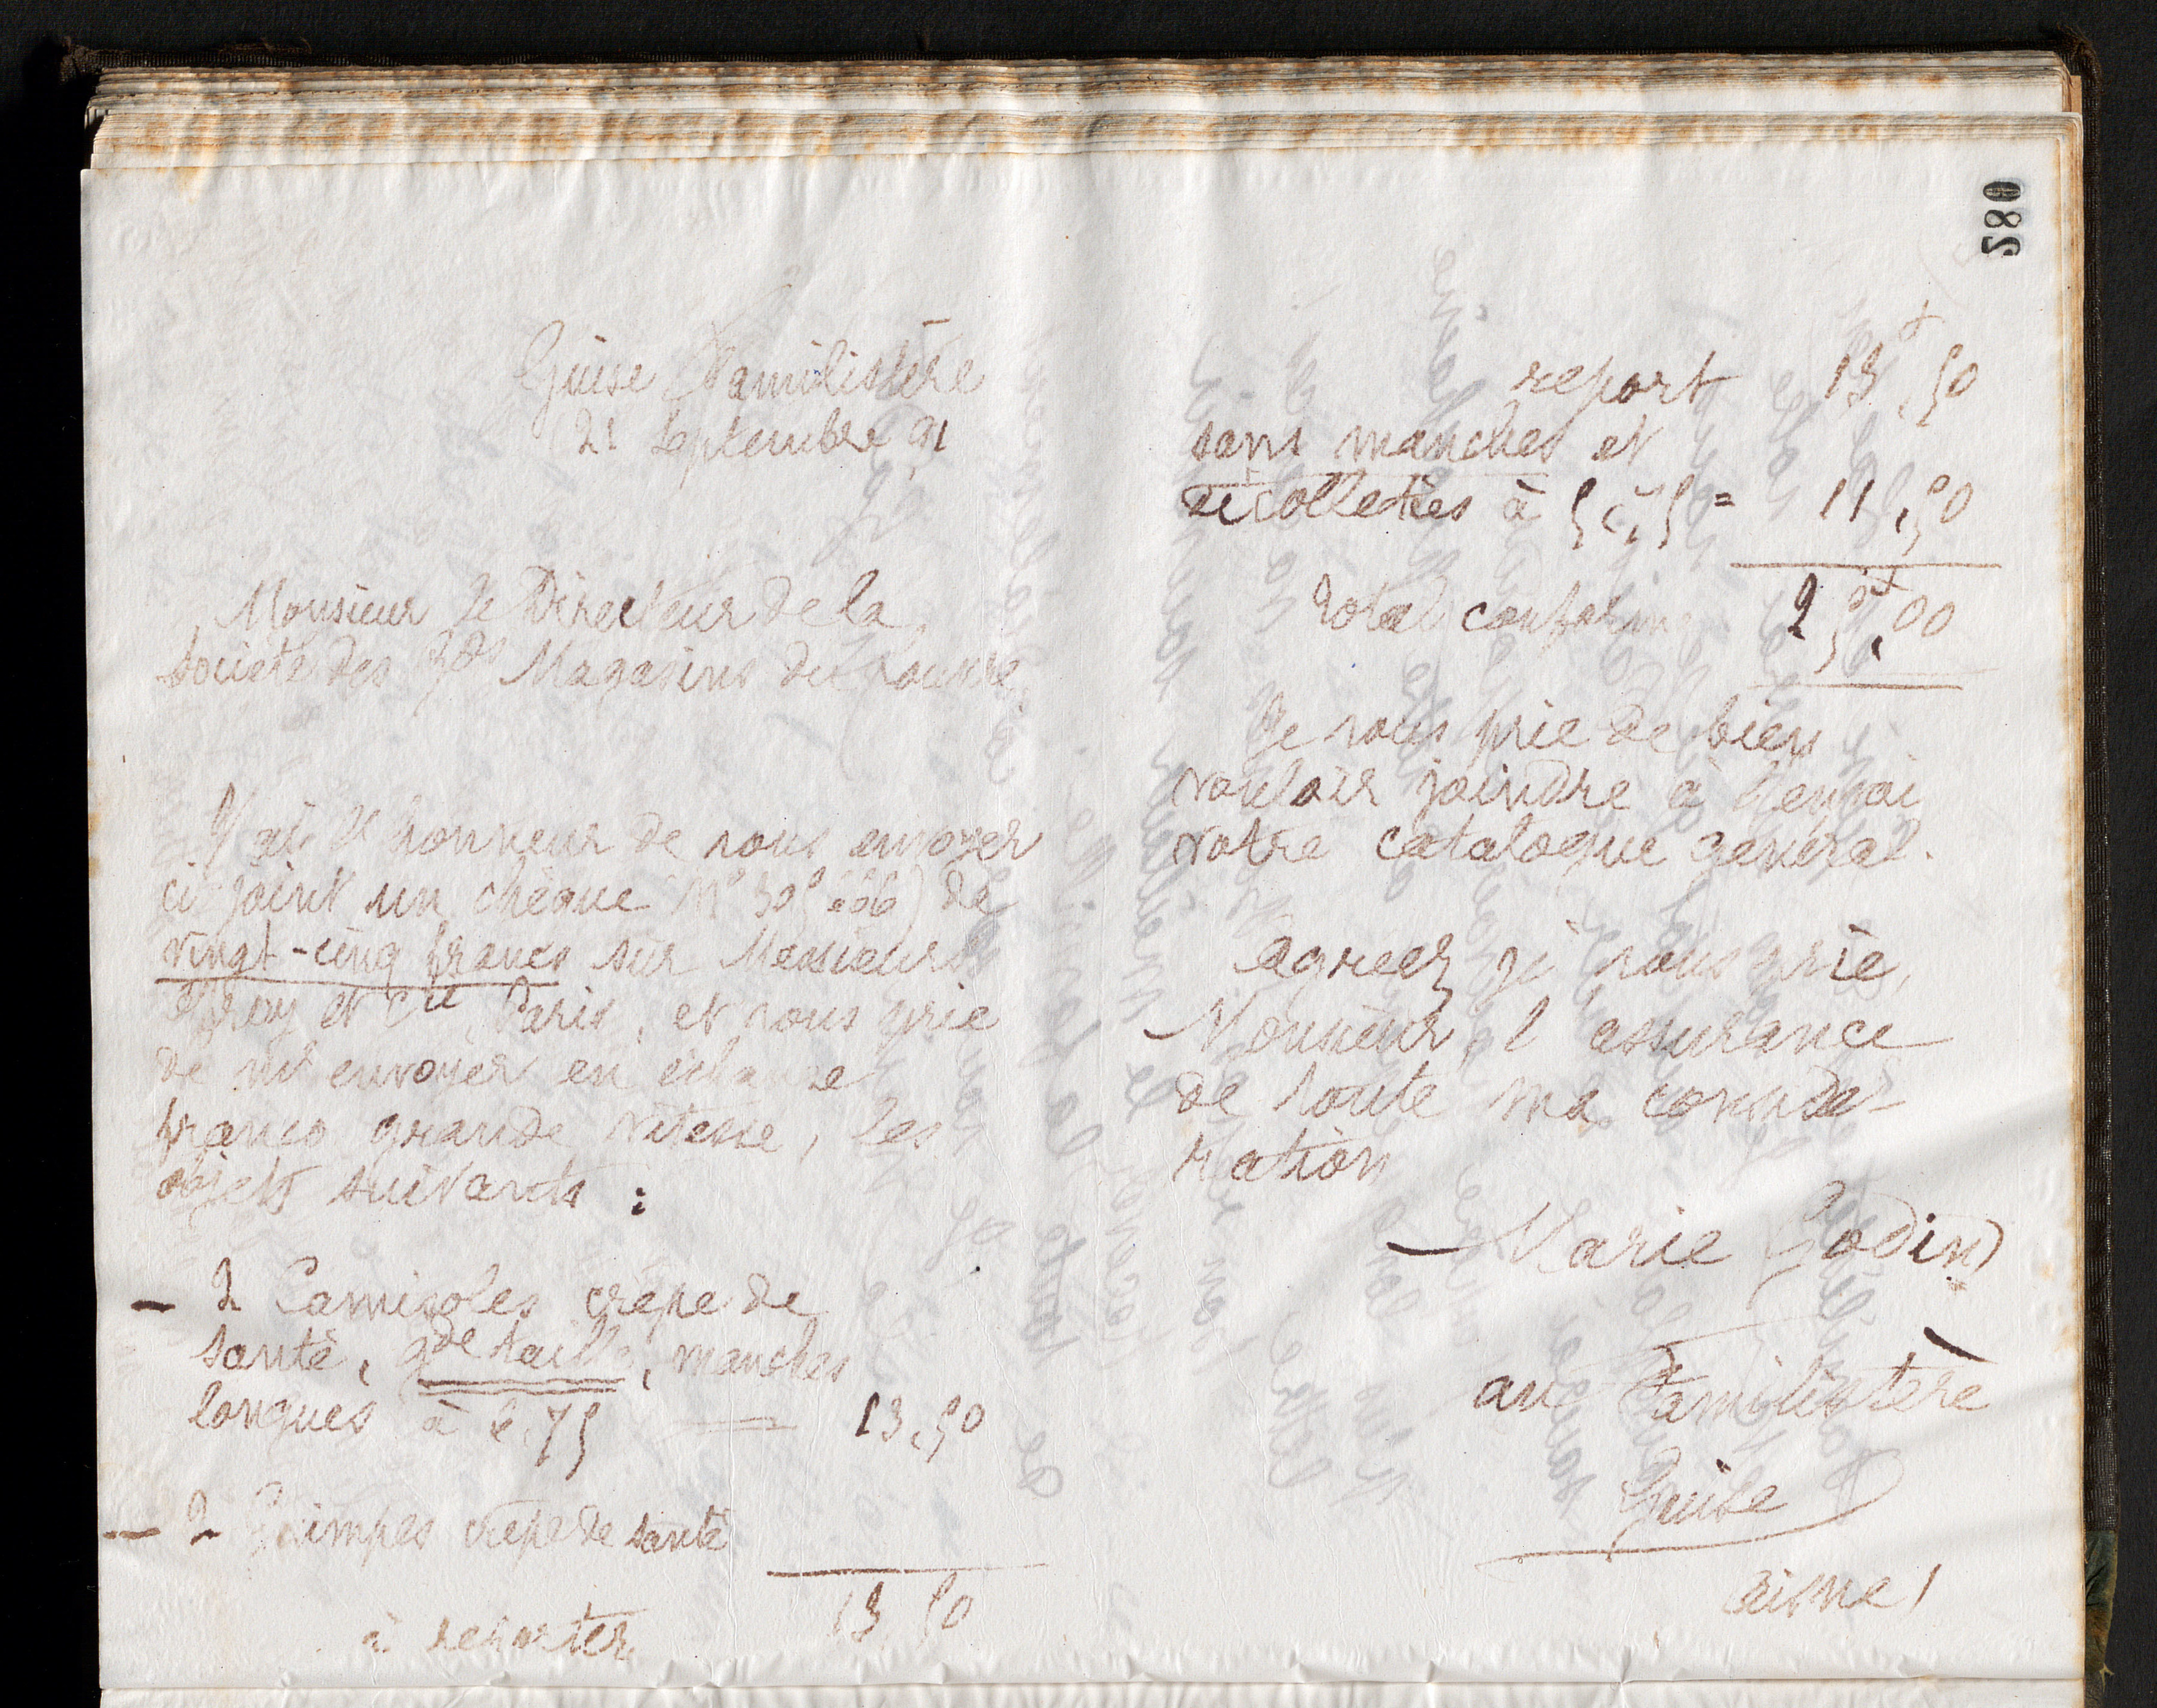 280
Guise Familistère
21 Septembre 91
Monsieur le Directeur de la
Société des Gds Magasins du Louvre,
J'ai l'honneur de vous envoyer
ci-joint un chèque N° 305.006) de
vingt-cinq francs sur Messieurs
et Cie, Paris, et vous prie
de m'envoyer en échange
franco grande vitesse, les
objets suivants :
– 2 Camisoles crêpe de
santé, gde taille, manches
longues à 6,75 = 13,50
– 2 Guimpes crêpe de santé
à reporter 13 50
report 13f,50
sans manches et
décolletées à 5,75 = 11,50
total conforme 25f,00
Je vous prie de bien
vouloir joindre à l'envoi
votre catalogue général.
Agréez, je vous prie,
Monsieur, l'assurance
de toute ma considé-
ration
Marie Godin
au Familistère
Guise
Aisne)